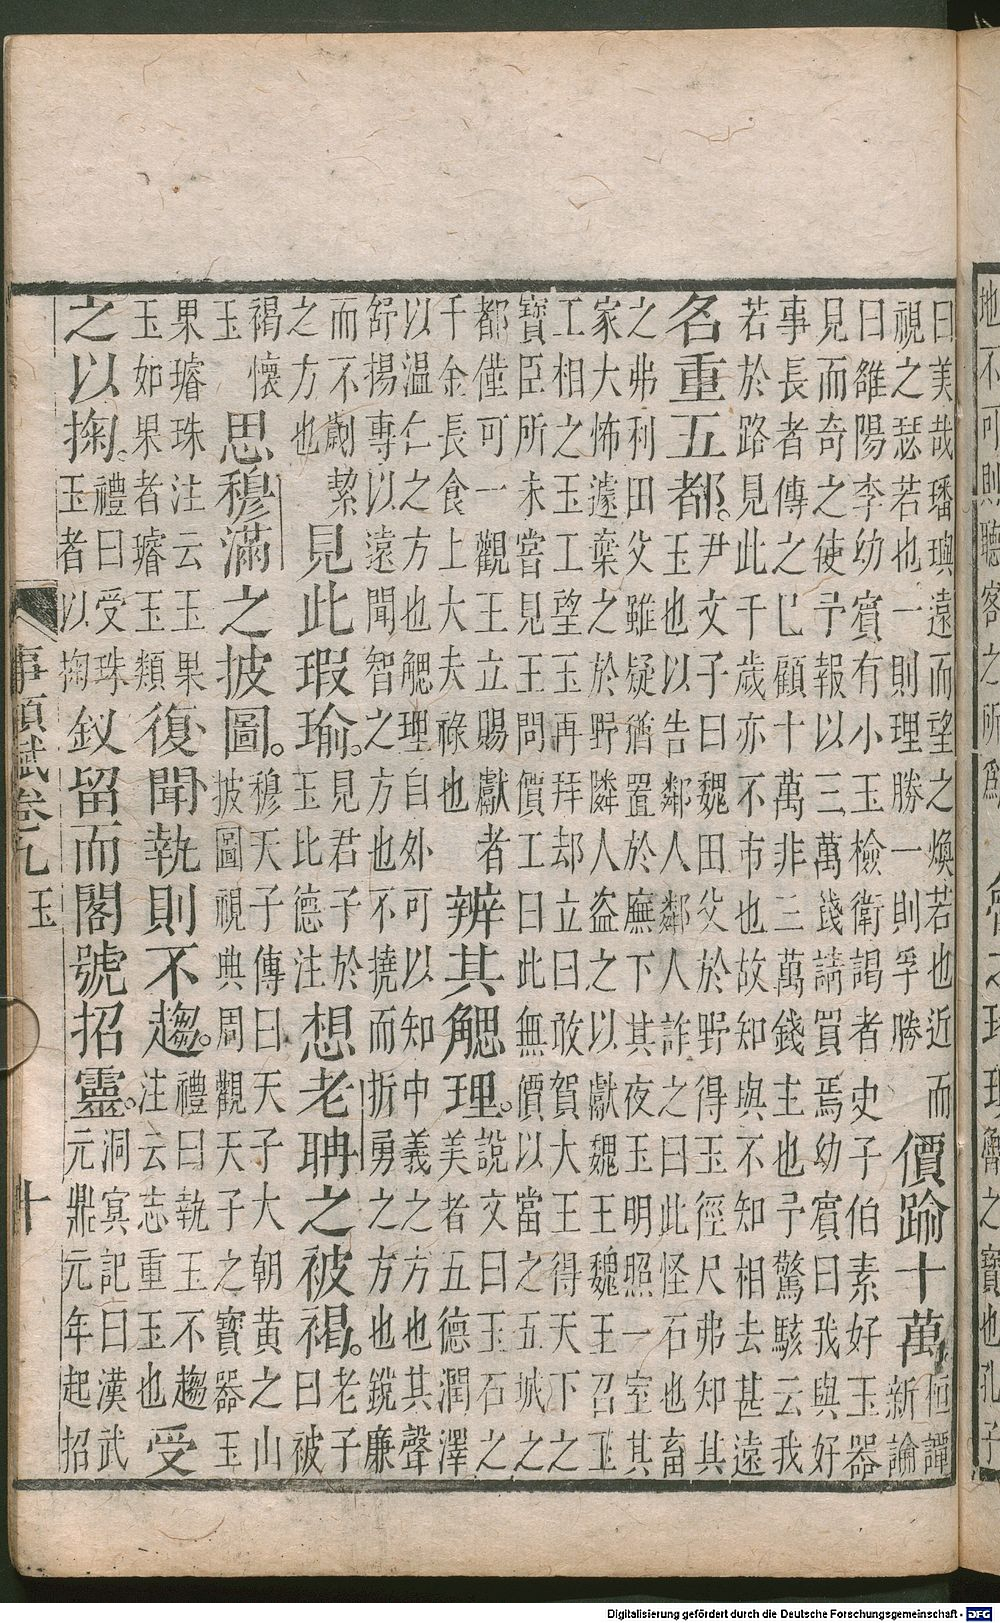 地不可則聽客之所爲
之寶也孔子
曰美哉璠璵遠而望之煥若也近而視之瑟若也一則理勝一則孚勝價踰十萬桓譚新論
曰雒陽李幼賓有小玉檢衛謁者史子伯素好玉器見而奇之使予報以三萬錢請買焉幼賓曰我與好
事長者傳之已顧十萬非三萬錢主也予驚駭云我若於路見此千歲亦不市也故知與不知相去甚遠
名重五都。尹文子曰魏田父於野得玉徑尺弗知其玉也以告鄰人鄰人詐之曰此怪石也畜
之弗利田父雖疑猶置於廡下其夜玉明照一室其家大怖遽棄之於野隣人盜之以獻魏王魏王召玉
工相之玉工望玉再拜却立曰敢賀大王得天下之寶臣所未嘗見王問價工曰此無價以當之五城之
都僅可一觀王立賜獻者千金長食上大夫祿也辨其䚡理。說文曰玉石之美者五德潤澤
以温仁之方也䚡理自外可以知中義之方也其聲舒揚專以遠聞智之方也不撓而折勇之方也銳廉
而不劌絜之方也見此瑕瑜。見君子於玉比德注想老聃之被褐。老子曰被
褐懷玉思穆滿之披圖。穆天子傳曰天子大朝黃之山披圖視典周觀天子之寶器玉
果璿珠注云玉果玉如果者璿玉類復聞執則不趨。禮曰執玉不趨注云志重玉也受
之以掬。禮曰受珠玉者以掬釵留而閣號招靈。洞冥記曰漢武元鼎元年起招
事類賦卷九 玉 十
Digitalisierung gefördert durch die Deutsche Forschungsgemeinschaft - DFG